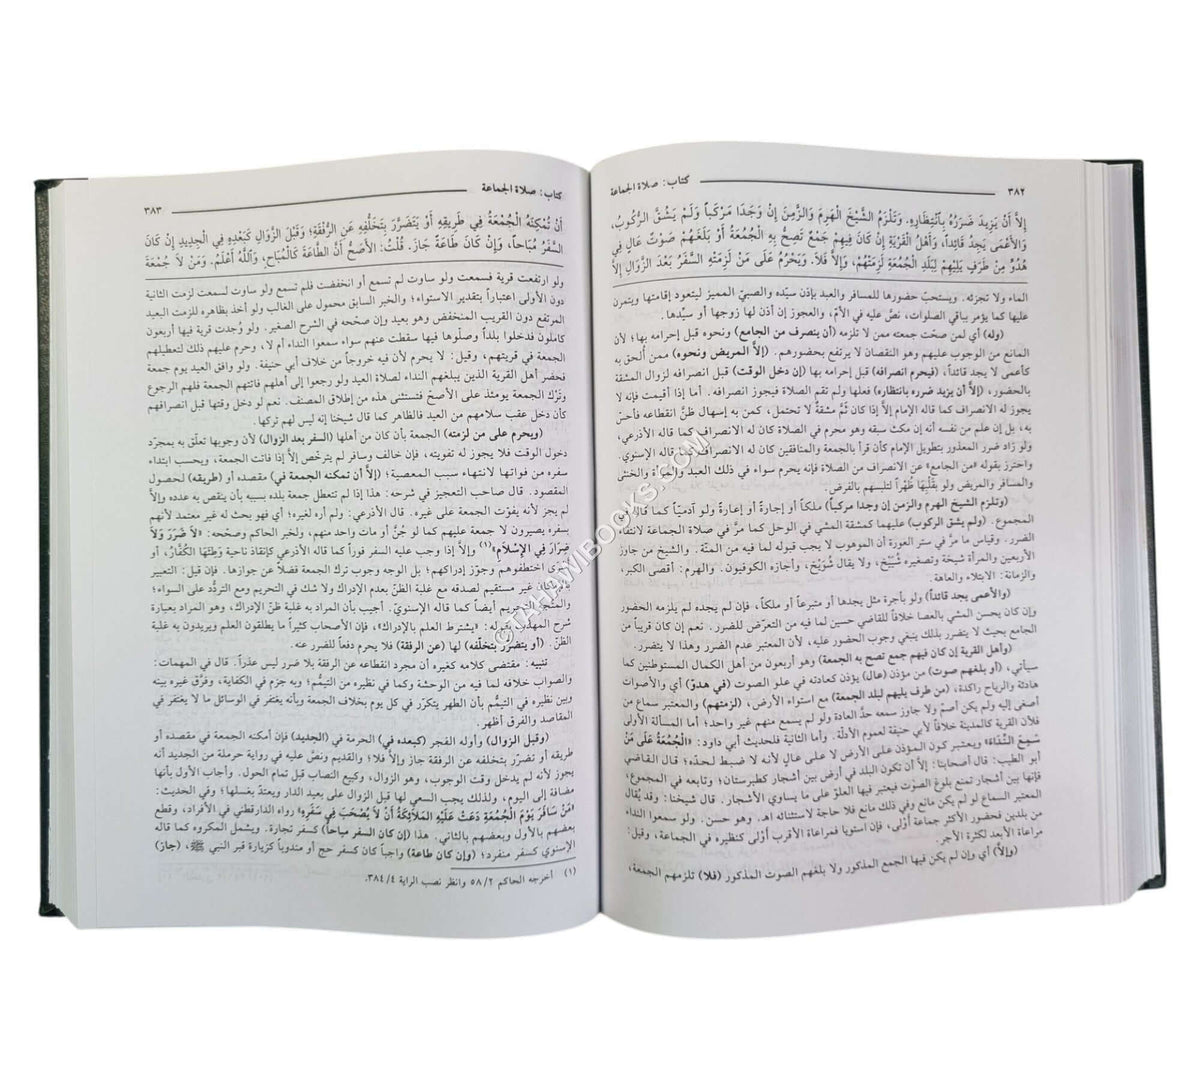 ٣٨٢ كتاب: صلاة الجماعة
إلاَّ أَنْ يَزِيدَ ضَرَرُهُ بِانْتِظَارِهِ. وَتَلْزَمُ الشَّيْخَ الْهَرِمَ وَالزَّمِنَ إِنْ وَجَدَا مَرْكَباً وَلَمْ يَشُقَّ الرُّكُوبُ،
وَالأَعْمَى يَجِدُ قَائِداً، وَأَهْلُ الْقَرْيَةِ إِنْ كَانَ فِيهِمْ جَمْعٌ تَصِحُّ بِهِ الْجُمُعَةُ أَوْ بَلَغَهُمْ صَوْتٌ عَالٍ فِي
هُدُوٍّ مِنْ طَرَفٍ يَلِيهِمْ لِبَلَدِ الْجُمُعَةِ لَزِمَتْهُمْ، وَإِلاَّ فَلاَ. وَيَحْرُمُ عَلَى مَنْ لَزِمَتْهُ السَّفَرُ بَعْدَ الزَّوَالِ إِلاَّ
الماء ولا تجزئه. ويستحبّ حضورها للمسافر والعبد بإذن سيّده والصبيّ المميز ليتعود إقامتها ويتمرن
عليها كما يؤمر بباقي الصلوات، نصّ عليه في الأمّ، والعجوز إن أذن لها زوجها أو سيّدها.
(وله) أي لمن صحّت جمعته ممن لا تلزمه (أن ينصرف من الجامع) ونحوه قبل إحرامه بها؛ لأن
المانع من الوجوب عليهم وهو النقصان لا يرتفع بحضورهم. (إلاَّ المريض ونحوه) ممن أُلحق به
كأعمى لا يجد قائداً، (فيحرم انصرافه) قبل إحرامه بها (إن دخل الوقت) قبل انصرافه لزوال المشقة
بالحضور، (إلاَّ أن يزيد ضرره بانتظاره) فعلها ولم تقم الصلاة فيجوز انصرافه. أما إذا أقيمت فإنه لا
يجوز له الانصراف كما قاله الإمام إلاَّ إذا كان ثَمَّ مشقةٌ لا تحتمل، كمن به إسهال ظنَّ انقطاعه فأحسّ
به، بل إن علم من نفسه أنه إن مكث سبقه وهو محرم في الصلاة كان له الانصراف كما قاله الأذرعي،
ولو زاد ضرر المعذور بتطويل الإمام كأن قرأ بالجمعة والمنافقين كان له الانصراف كما قاله الإسنوي.
واحترز بقوله «من الجامع» عن الانصراف من الصلاة فإنه يحرم سواء في ذلك العبد والمرأة والخنثى
والمسافر والمريض ولو بقَلْبِهَا ظُهْراً لتلبسهم بالفرض.
(وتلزم الشيخ الهرم والزمن إن وجدا مركباً) ملكاً أو إجارة أو إعارة ولو آدميّاً كما قاله في
المجموع. (ولم يشق الركوب) عليهما كمشقة المشي في الوحل كما مرَّ في صلاة الجماعة لانتفاء
الضرر. وقياس ما مرَّ في ستر العورة أن الموهوب لا يجب قبوله لما فيه من المنّة. والشيخ من جاوز
الأربعين والمرأة شيخة وتصغيره شُيَيْخ، ولا يقال شُوَيْخ، وأجازه الكوفيون. والهرم: أقصى الكبر،
والزمانة: الابتلاء والعاهة.
(والأعمى يجد قائداً) ولو بأجرة مثل يجدها أو متبرعاً أو ملكاً، فإن لم يجده لم يلزمه الحضور
وإن كان يحسن المشي بالعصا خلافاً للقاضي حسين لما فيه من التعرّض للضرر. نعم إن كان قريباً من
الجامع بحيث لا يتضرر بذلك ينبغي وجوب الحضور عليه، لأن المعتبر عدم الضرر وهذا لا يتضرر.
(وأهل القرية إن كان فيهم جمع تصح به الجمعة) وهو أربعون من أهل الكمال المستوطنين كما
سيأتي، (أو بلغهم صوت) من مؤذن (عال) يؤذن كعادته في علو الصوت (في هدوّ) أي والأصوات
هادئة والرياح راكدة، (من طرف يليهم لبلد الجمعة) مع استواء الأرض، (لزمتهم) والمعتبر سماع من
أصغى إليه ولم يكن أصمّ ولا جاوز سمعه حدَّ العادة ولو لم يسمع منهم غير واحد؛ أما المسألة الأولى
فلأن القرية كالمدينة خلافاً لأبي حنيفة لعموم الأدلّة. وأما الثانية فلحديث أبي داود: «الْجُمُعَةُ عَلَى مَنْ
سَمِعَ النِّدَاءَ» ويعتبر كون المؤذن على الأرض لا على عالٍ لأنه لا ضبط لحدّه؛ قال القاضي
أبو الطيب: قال أصحابنا: إلاَّ أن تكون البلد في أرض بين أشجار كطبرستان؛ وتابعه في المجموع،
فإنها بين أشجار تمنع بلوغ الصوت فيعتبر فيها العلوّ على ما يساوي الأشجار. قال شيخنا: وقد يُقال
المعتبر السماع لو لم يكن مانع وفي ذلك مانع فلا حاجة لاستثنائه اهـ. وهو حسن. ولو سمعوا النداء
من بلدين فحضور الأكثر جماعة أَوْلى، فإن استويا فمراعاة الأقرب أَوْلى كنظيره في الجماعة، وقيل:
مراعاة الأبعد لكثرة الأجر.
(وإلاَّ) أي وإن لم يكن فيها الجمع المذكور ولا بلغهم الصوت المذكور (فلا) تلزمهم الجمعة،
كتاب: صلاة الجماعة ٣٨٣
أَنْ تُمْكِنَهُ الْجُمُعَةُ فِي طَرِيقِهِ أَوْ يَتَضَرَّرَ بِتَخَلُّفِهِ عَنِ الرُّفْقَةِ؛ وَقَبْلَ الزَّوَالِ كَبَعْدِهِ فِي الْجَدِيدِ إِنْ كَانَ
السَّفَرُ مُبَاحاً، وَإِنْ كَانَ طَاعَةً جَازَ. قُلْتُ: الأَصَحُّ أَنَّ الطَّاعَةَ كَالْمُبَاحِ، وَاللَّهُ أَعْلَمُ. وَمَنْ لاَ جُمُعَةَ
ولو ارتفعت قرية فسمعت ولو ساوت لم تسمع أو انخفضت فلم تسمع ولو ساوت لسمعت لزمت الثانية
دون الأولى اعتباراً بتقدير الاستواء؛ والخبر السابق محمول على الغالب ولو أخذ بظاهره للزمت البعيد
المرتفع دون القريب المنخفض وهو بعيد وإن صحّحه في الشرح الصغير. ولو وُجدت قرية فيها أربعون
كاملون فدخلوا بلداً وصلّوها فيها سقطت عنهم سواء سمعوا النداء أم لا، وحرم عليهم ذلك لتعطيلهم
الجمعة في قريتهم، وقيل: لا يحرم لأن فيه خروجاً من خلاف أبي حنيفة. ولو وافق العيد يوم جمعة
فحضر أهل القرية الذين يبلغهم النداء لصلاة العيد ولو رجعوا إلى أهلهم فاتتهم الجمعة فلهم الرجوع
وتَرْكُ الجمعة يومئذ على الأصحّ فتستثنى هذه من إطلاق المصنف. نعم لو دخل وقتها قبل انصرافهم
كأن دخل عقب سلامهم من العيد فالظاهر كما قال شيخنا إنه ليس لهم تركها.
(ويحرم على من لزمته) الجمعة بأن كان من أهلها (السفر بعد الزوال) لأن وجوبها تعلّق به بمجرّد
دخول الوقت فلا يجوز له تفويته، فإن خالف وسافر لم يترخّص إلاَّ إذا فاتت الجمعة، ويحسب ابتداء
سفره من فواتها لانتهاء سبب المعصية؛ (إلاَّ أن تمكنه الجمعة في) مقصده أو (طريقه) لحصول
المقصود. قال صاحب التعجيز في شرحه: هذا إذا لم تتعطل جمعة بلده بسببه بأن ينقص به عدده وإلاَّ
لم يجز لأنه يفوّت الجمعة على غيره. قال الأذرعي: ولم أره لغيره؛ أي فهو بحث له غير معتمد لأنهم
بسفره يصيرون لا جمعة عليهم كما لو جُنَّ أو مات واحد منهم، ولخبر الحاكم وصحّحه: «لاَ ضَرَرَ وَلاَ
ضِرَارَ فِي الإِسْلاَمِ»(١) وإلاَّ إذا وجب عليه السفر فوراً كما قاله الأذرعي كإنقاذ ناحية وَطِئَهَا الكُفَّارُ، أو
أسرى اختطفوهم وجوّز إدراكهم؛ بل الوجه وجوب ترك الجمعة فضلاً عن جوازها. فإن قيل: التعبير
بالإمكان غير مستقيم لصدقه مع غلبة الظنّ بعدم الإدراك ولا شك في التحريم ومع التردُّد على السواء؛
والمتجه التحريم أيضاً كما قاله الإسنويّ. أجيب بأن المراد به غلبة ظنّ الإدراك، وهو المراد بعبارة
شرح المهذب بقوله: «يشترط العلم بالإدراك»، فإن الأصحاب كثيراً ما يطلقون العلم ويريدون به غلبة
الظنّ. (أو يتضرّر بتخلّفه) لها (عن الرفقة) فلا يحرم دفعاً للضرر عنه.
تنبيه: مقتضى كلامه كغيره أن مجرد انقطاعه عن الرفقة بلا ضرر ليس عذراً. قال في المهمات:
والصواب خلافه لما فيه من الوحشة وكما في نظيره من التيمُّم؛ وبه جزم في الكفاية، وفرَّق غيره بينه
وبين نظيره في التيمُّم بأن الطهر يتكرّر في كل يوم بخلاف الجمعة وبأنه يغتفر في الوسائل ما لا يغتفر في
المقاصد والفرق أظهر.
(وقبل الزوال) وأوله الفجر (كبعده في) الحرمة في (الجديد) فإن أمكنته الجمعة في مقصده أو
طريقه أو تضرّر بتخلفه عن الرفقة جاز وإلاَّ فلا؛ والقديم ونصّ عليه في رواية حرملة من الجديد أنه
يجوز لأنه لم يدخل وقت الوجوب، وهو الزوال، وكبيع النصاب قبل تمام الحول. وأجاب الأول بأنها
مضافة إلى اليوم، ولذلك يجب السعي لها قبل الزوال على بعيد الدار ويعتدّ بغسلها؛ وفي الحديث:
«مَنْ سَافَرَ يَوْمَ الْجُمُعَةِ دَعَتْ عَلَيْهِ المَلاَئِكَةُ أَنْ لاَ يُصْحَبَ فِي سَفَرِهِ» رواه الدارقطني في الأفراد، وقطع
بعضهم بالأول وبعضهم بالثاني. هذا (إن كان السفر مباحاً) كسفر تجارة. ويشمل المكروه كما قاله
الإسنوي كسفر منفرد؛ (وإن كان طاعة) واجباً كان كسفر حج أو مندوباً كزيارة قبر النبي ﷺ، (جاز)
(١) أخرجه الحاكم ٥٨/٢ وانظر نصب الراية ٣٨٤/٤.
©TAHAWIBOOKS.COM